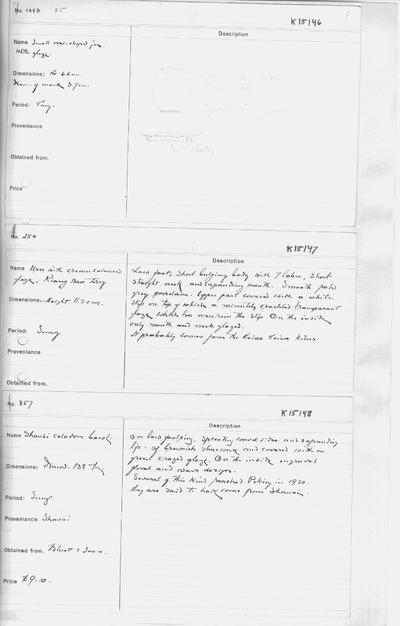 No. 1293 85
K15/46
Description
Name Small oval-shaped jar
White glaze
Dimensions: H. 6.6 cm.
Diam. of mouth 3.7 cm.
Period: Tang.
Provenance
Obtained from.
Price
No. 254
K15/47
Description
Name Urn with cream coloured
glaze, Kiang Nan Ting
Dimensions: Height 11.3 cm.
Period: Sung
Provenance
Obtained from
Low foot, short bulging body with 7 lobes, short
straight neck and expanding mouth. Smooth pale
grey porcelain. Upper part covered with a white
slip on top of which a minutely crackled transparent
glaze which has overrun the slip. On the inside
only mouth and neck glazed.
It probably comes from the kilns
No. 857
K15/48
Description
Name Shansi celadon bowl
Dimensions: Diam.
Period: Sung.
Provenance Shansi
Obtained from. Bluett & Sons.
Price £9.10.
On low footring, spreading curved sides and expanding
lip. Of brownish stoneware and covered with a
green crazed glaze. On the inside engraved
floral and wave designs.
Several of this kind reached Peking in 1930.
They are said to have come from Shansi.